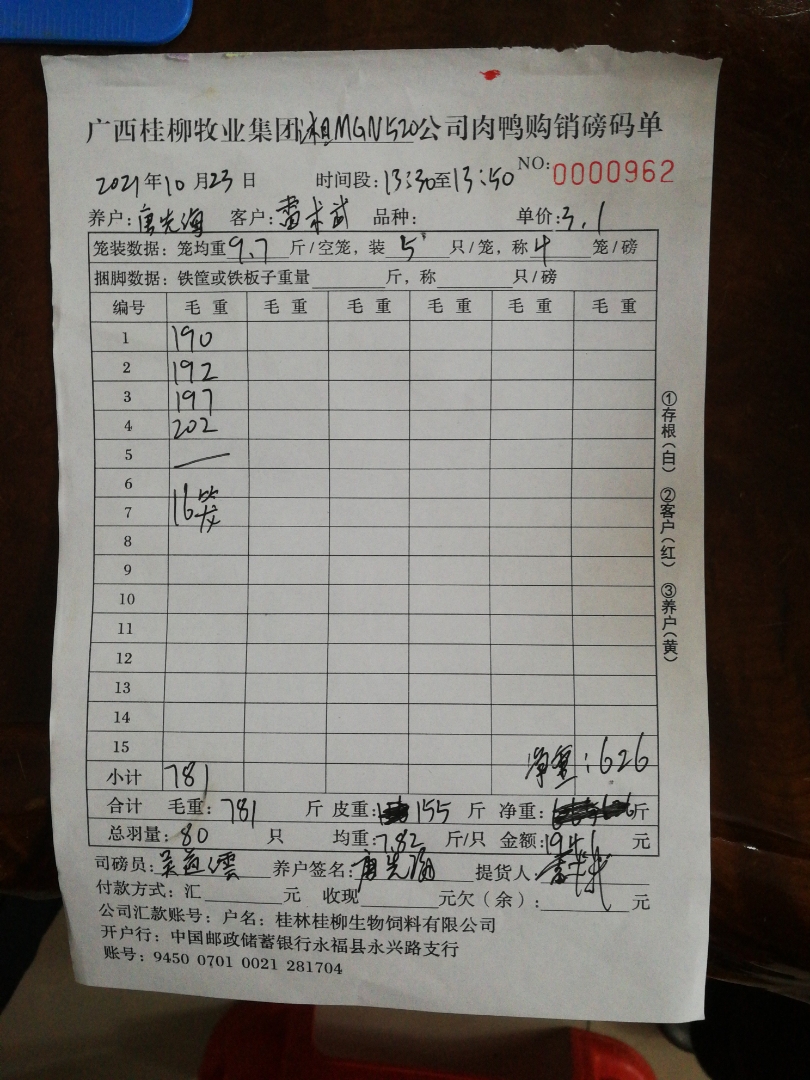 广西桂柳牧业集团湘MGN520公司肉鸭购销磅码单
2021年10月23日 时间段:13:30至13:50 NO:0000962
养户:唐先海 客户: 品种: 单价:3.1
笼装数据:笼均重9.7斤/空笼,装5只/笼,称4笼/磅
捆脚数据:铁筐或铁板子重量 斤,称 只/磅
编号 毛重 毛重 毛重 毛重 毛重 毛重
1 190
2 192
3 197
4 202
5 —
6
7 16笼
8
9
10
11
12
13
14
15
净重:626
小计 781
合计 毛重:781斤 皮重:155斤 净重: 斤
总羽量:80只 均重:7.82斤/只 金额:1941元
司磅员: 养户签名:唐先海 提货人:
付款方式:汇 元 收现 元欠(余): 元
公司汇款账号:户名:桂林桂柳生物饲料有限公司
开户行:中国邮政储蓄银行永福县永兴路支行
账号:9450 0701 0021 281704
①存根(白) ②客户(红) ③养户(黄)